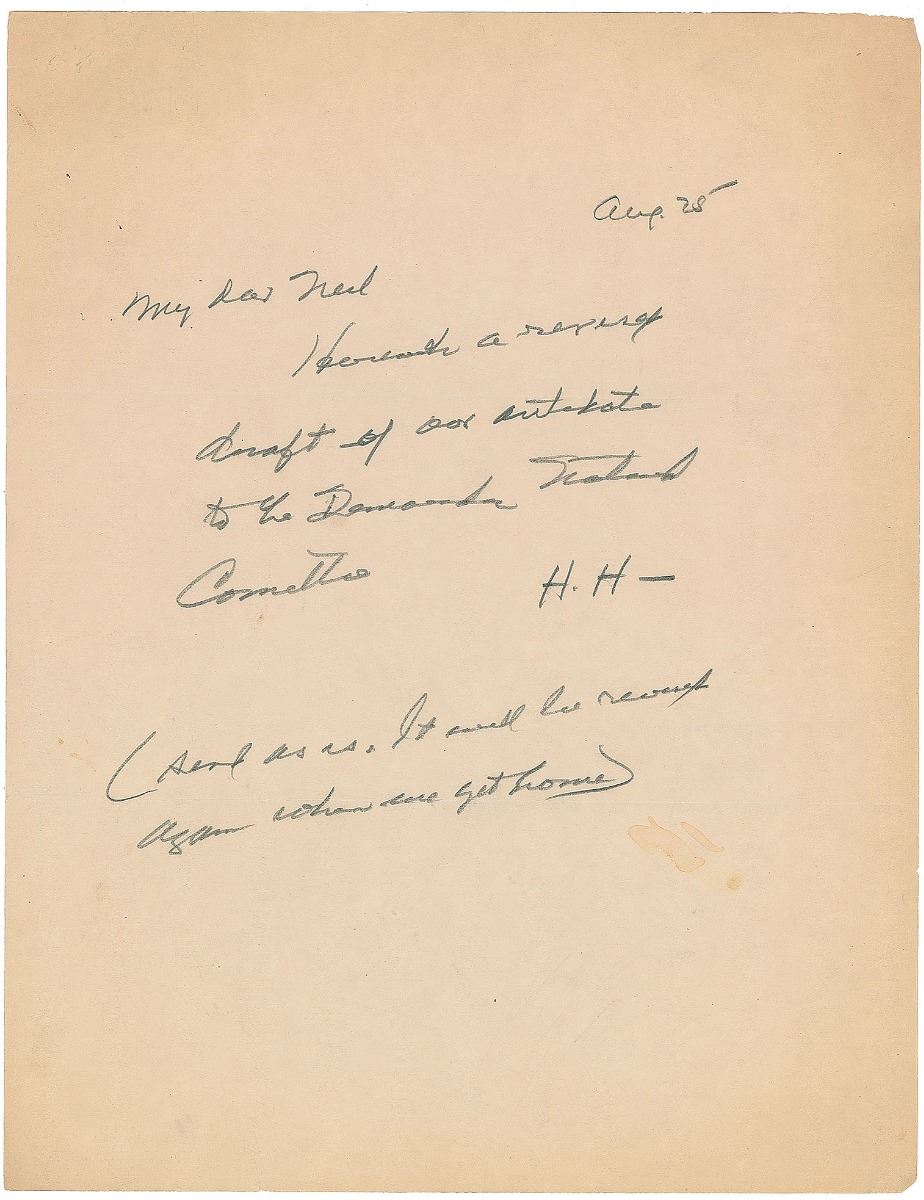 Aug. 25
My Dear Neil
Herewith a revised
draft of our antidote
to the Democratic National
Committee
H. H —
(send as is. It will be revised
again when we get home)